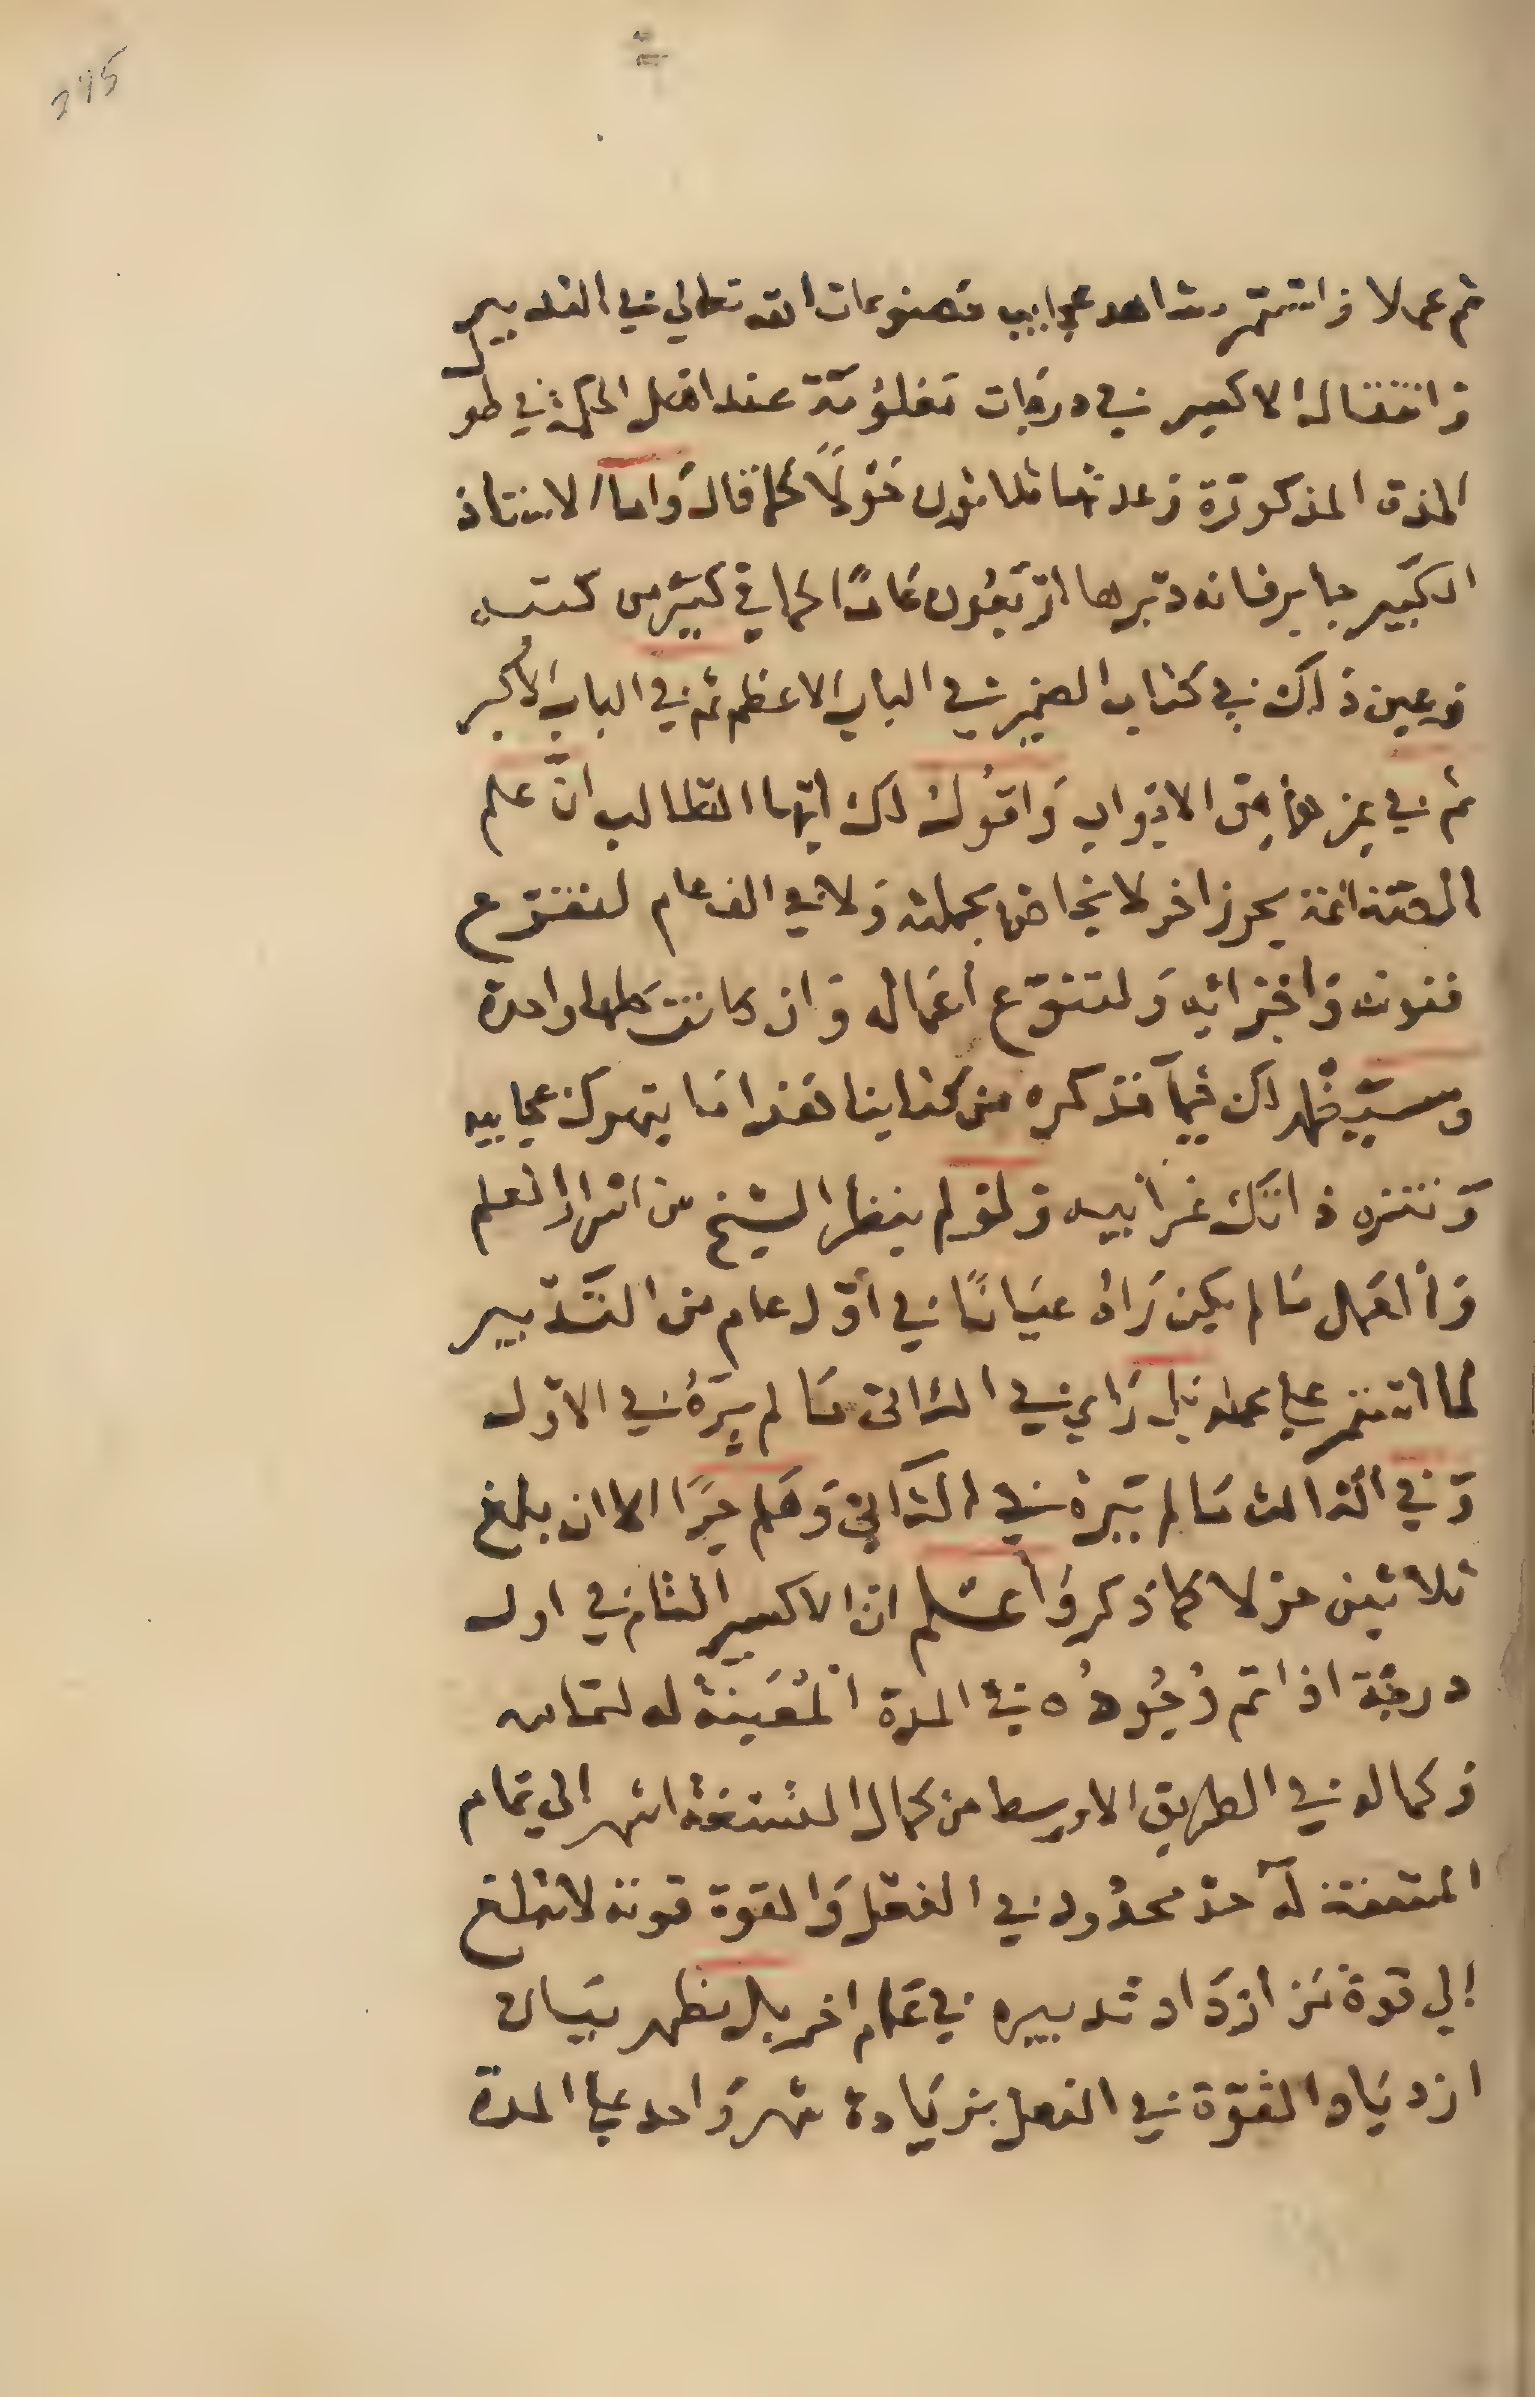 295
ثم عملا واستمر يشاهد عجايب مصنوعات الله تعالى في التدبير
وانتقال الاكسير في درجات معلومة عند اهل الحكمة في طو
المدة المذكورة وعدتها ثلاثون حولا كما قال واما الاستاذ
الكبير جابر فانه دبرها اربعون عاما كما في كثير من كتبه
وعين ذلك في كتاب الضمير في الباب الاعظم ثم في الباب الاكبر
ثم في غيرها من الابواب واقول لك ايها الطالب ان علم
الصنعة بحر زاخر لا يخاض بجملته ولا في الف عام لتفرع
فنونه واجزائه ولتنوع اعماله وان كانت كلها واحدة
وسيظهر لك فيما نذكره من كتابنا هذا ما يبهرك عجايبه
وتنزه ذاتك غرايبه ولو لم ينظر الشيخ من اسرار العلم
والعمل ما لم يكن رآه عيانا في أول عام من التدبير
لما استمر على عمله بل راي في الثاني ما لم يره في الاول
وفي الثالث ما لم يره في الثاني وهلم جرا الا ان بلغ
ثلاثين حولا كما ذكر واعلم ان الاكسير التام في اول
درجة اذا تم وجوده في المدة المعينة له لتمامه
وكماله في الطريق الاوسط من كمال التسعة اشهر الي تمام
السنة له حد محدود في الفعل والقوة قوته لا تبلغ
الي قوة من ازداد تدبيره في عام اخر بل نظهر بيان
ازدياد القوة في الفعل بزيادة شهر واحد على المدة